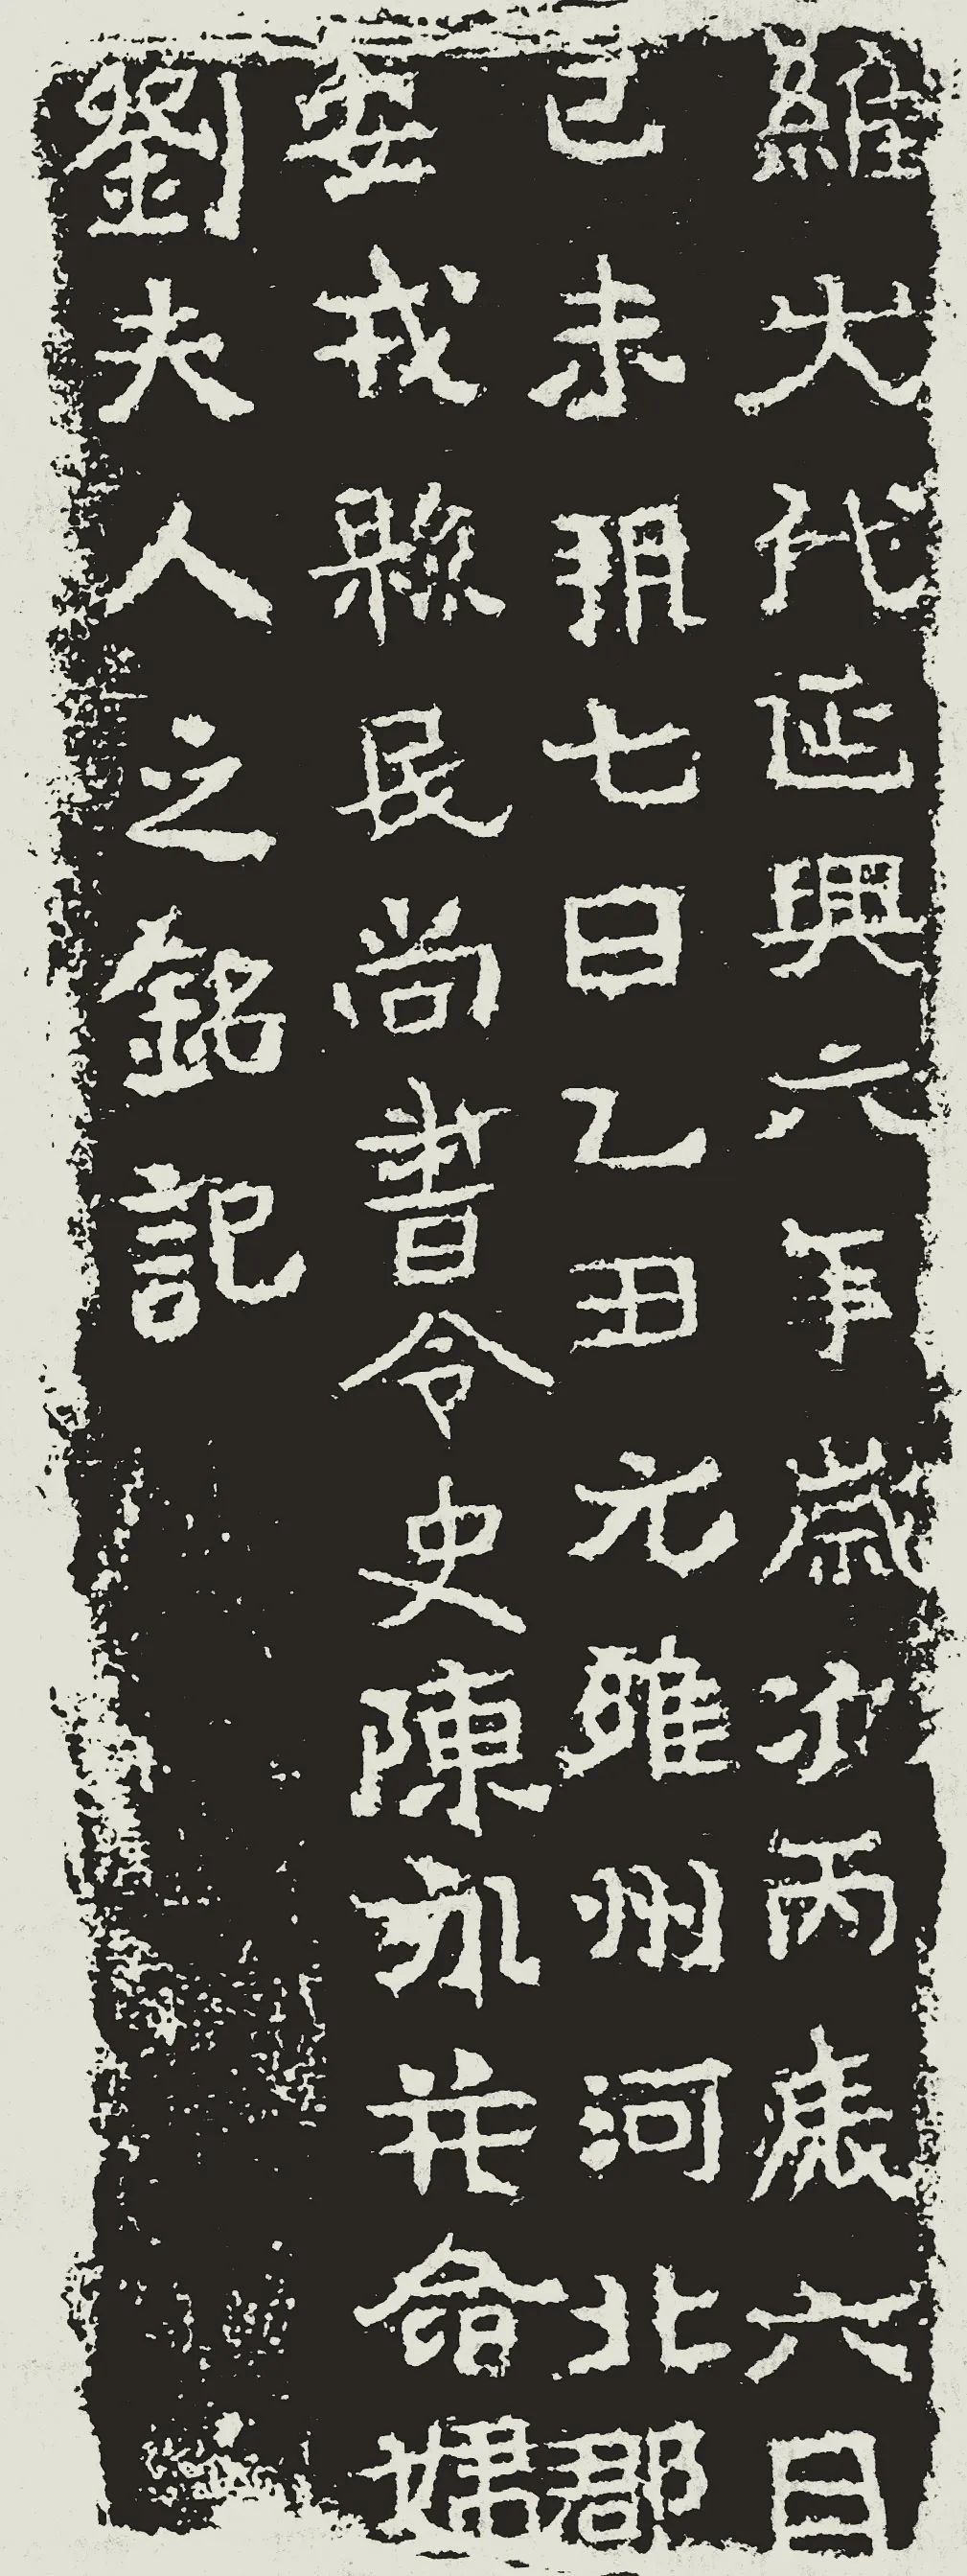 維大代延興六年歲次丙辰六月
己未朔七日乙丑元雍州河北郡
安戎縣民尚書令史陳永並命婦
劉夫人之銘記